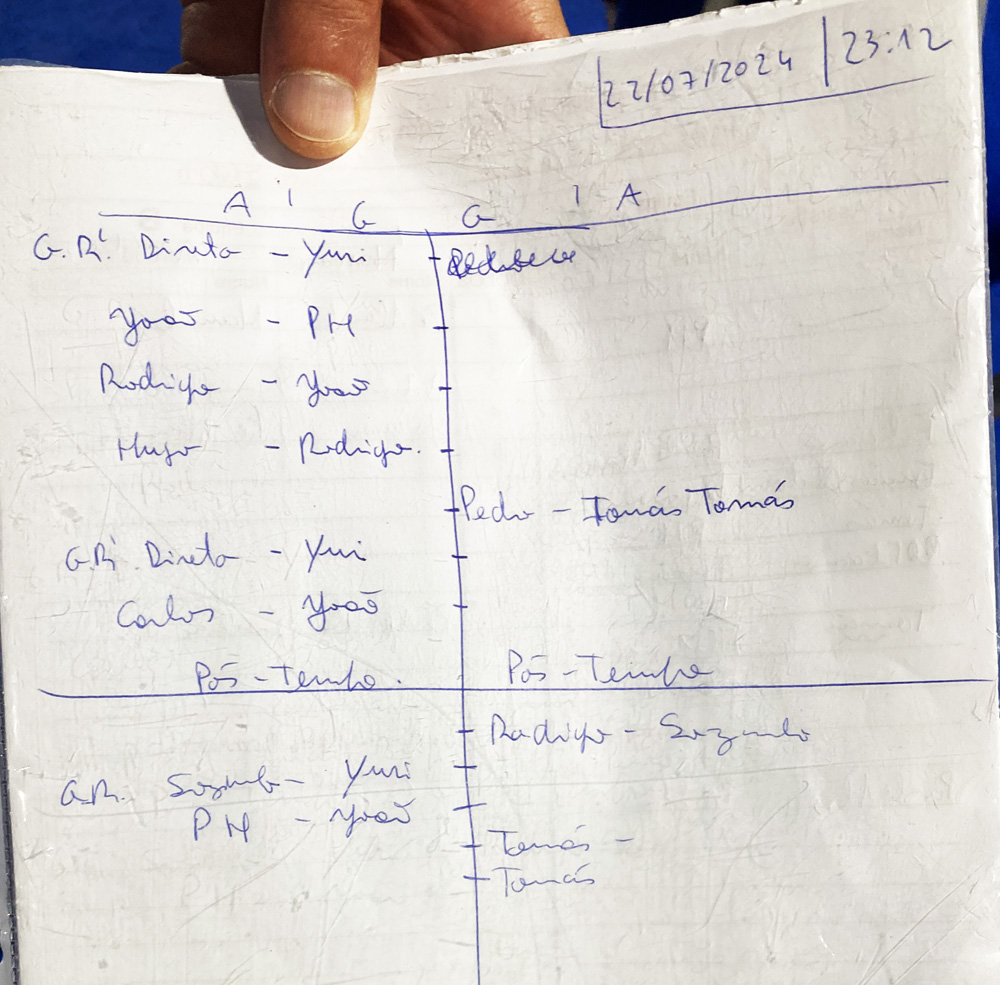 22/07/2024 | 23:12
A i G G i A
G.R. Direta - Yuri
Yoão - PH
Rodrigo - Yoão
Hugo - Rodrigo.
Pedro - Tomás Tomás
G.R. Direta - Yuri
Carlos - Yoão
Pós-Tempo. Pós-Tempo
Rodrigo - Sozinho
G.R. Sozinho - Yuri
PH - Yoão
Tomás -
Tomás